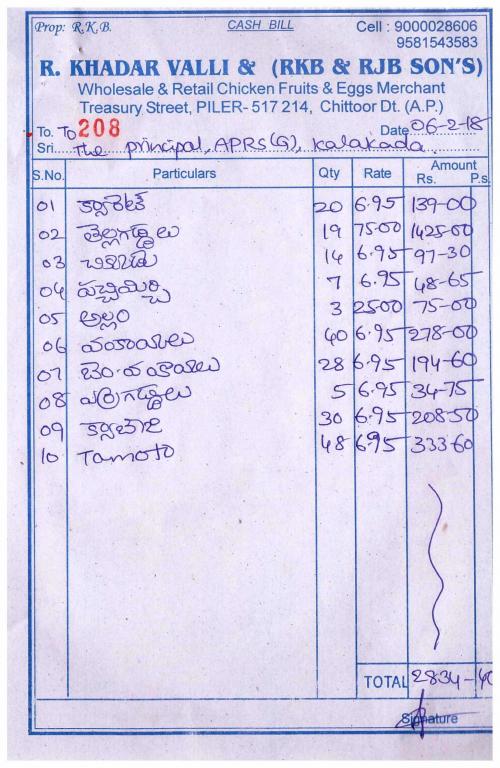 Prop: R.K.B. CASH BILL Cell : 9000028606
9581543583
R. KHADAR VALLI & (RKB & RJB SON'S)
Wholesale & Retail Chicken Fruits & Eggs Merchant
Treasury Street, PILER- 517 214, Chittoor Dt. (A.P.)
To. To 208 Date 06-2-18
Sri. The principal, APRS(G), Kalakada.
S.No. Particulars Qty Rate Amount
Rs. P.s.
01 క్యారెట్ 20 6.95 139-00
02 తెల్లగడ్డలు 19 75-00 1425-00
03 చికుడు 14 6.95 97-30
04 పచ్చిమిర్చి 7 6.95 48-65
05 అల్లం 3 25-00 75-00
06 వంకాయలు 40 6.95 278-00
07 28 6.95 194-60
08 ఎర్రగడ్డలు 5 6.95 34-75
09 30 6.95 208-50
10 Tamoto 48 6.95 333-60
TOTAL 2834-40
Signature